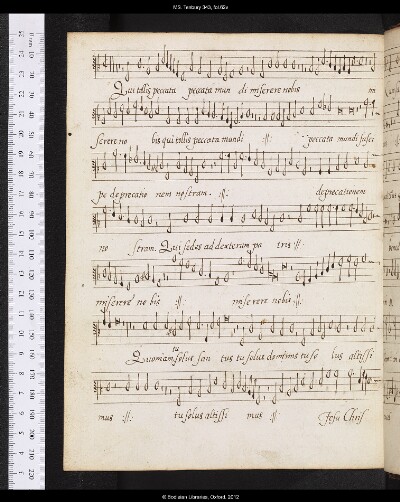 MS. Tenbury 343, fol. 62v
Qui tollis peccata peccata mun di miserere nobis mi
serere no bis qui tollis peccata mundi :||: peccata mundi susci
pe deprecatio nem nostram. :||: deprecationem
no stram. Qui sedes ad dexteram pa tris :||:
miserere no bis :||: miserere nobis :||:
Quoniam tu solus san tus tu solus dominus tu so lus altissi
mus :||: tu solus altissi mus :||: Jesu Chris
© Bodleian Libraries, Oxford, 2012